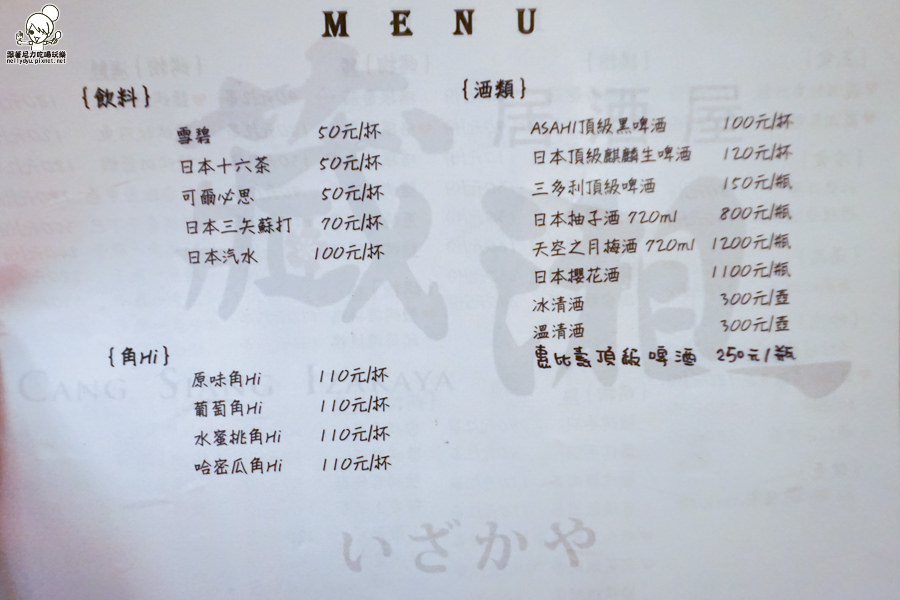 跟著尼力吃喝玩樂
nellydyu.pixnet.net
MENU
{飲料}
雪碧 50元/杯
日本十六茶 50元/杯
可爾必思 50元/杯
日本三矢蘇打 70元/杯
日本汽水 100元/杯
{角Hi}
原味角Hi 110元/杯
葡萄角Hi 110元/杯
水蜜桃角Hi 110元/杯
哈密瓜角Hi 110元/杯
{酒類}
ASAHI頂級黑啤酒 100元/杯
日本頂級麒麟生啤酒 120元/杯
三多利頂級啤酒 150元/瓶
日本柚子酒 720ml 800元/瓶
天空之月梅酒 720ml 1200元/瓶
日本櫻花酒 1100元/瓶
冰清酒 300元/壺
溫清酒 300元/壺
惠比壽頂級啤酒 250元/瓶
居酒屋
いざかや